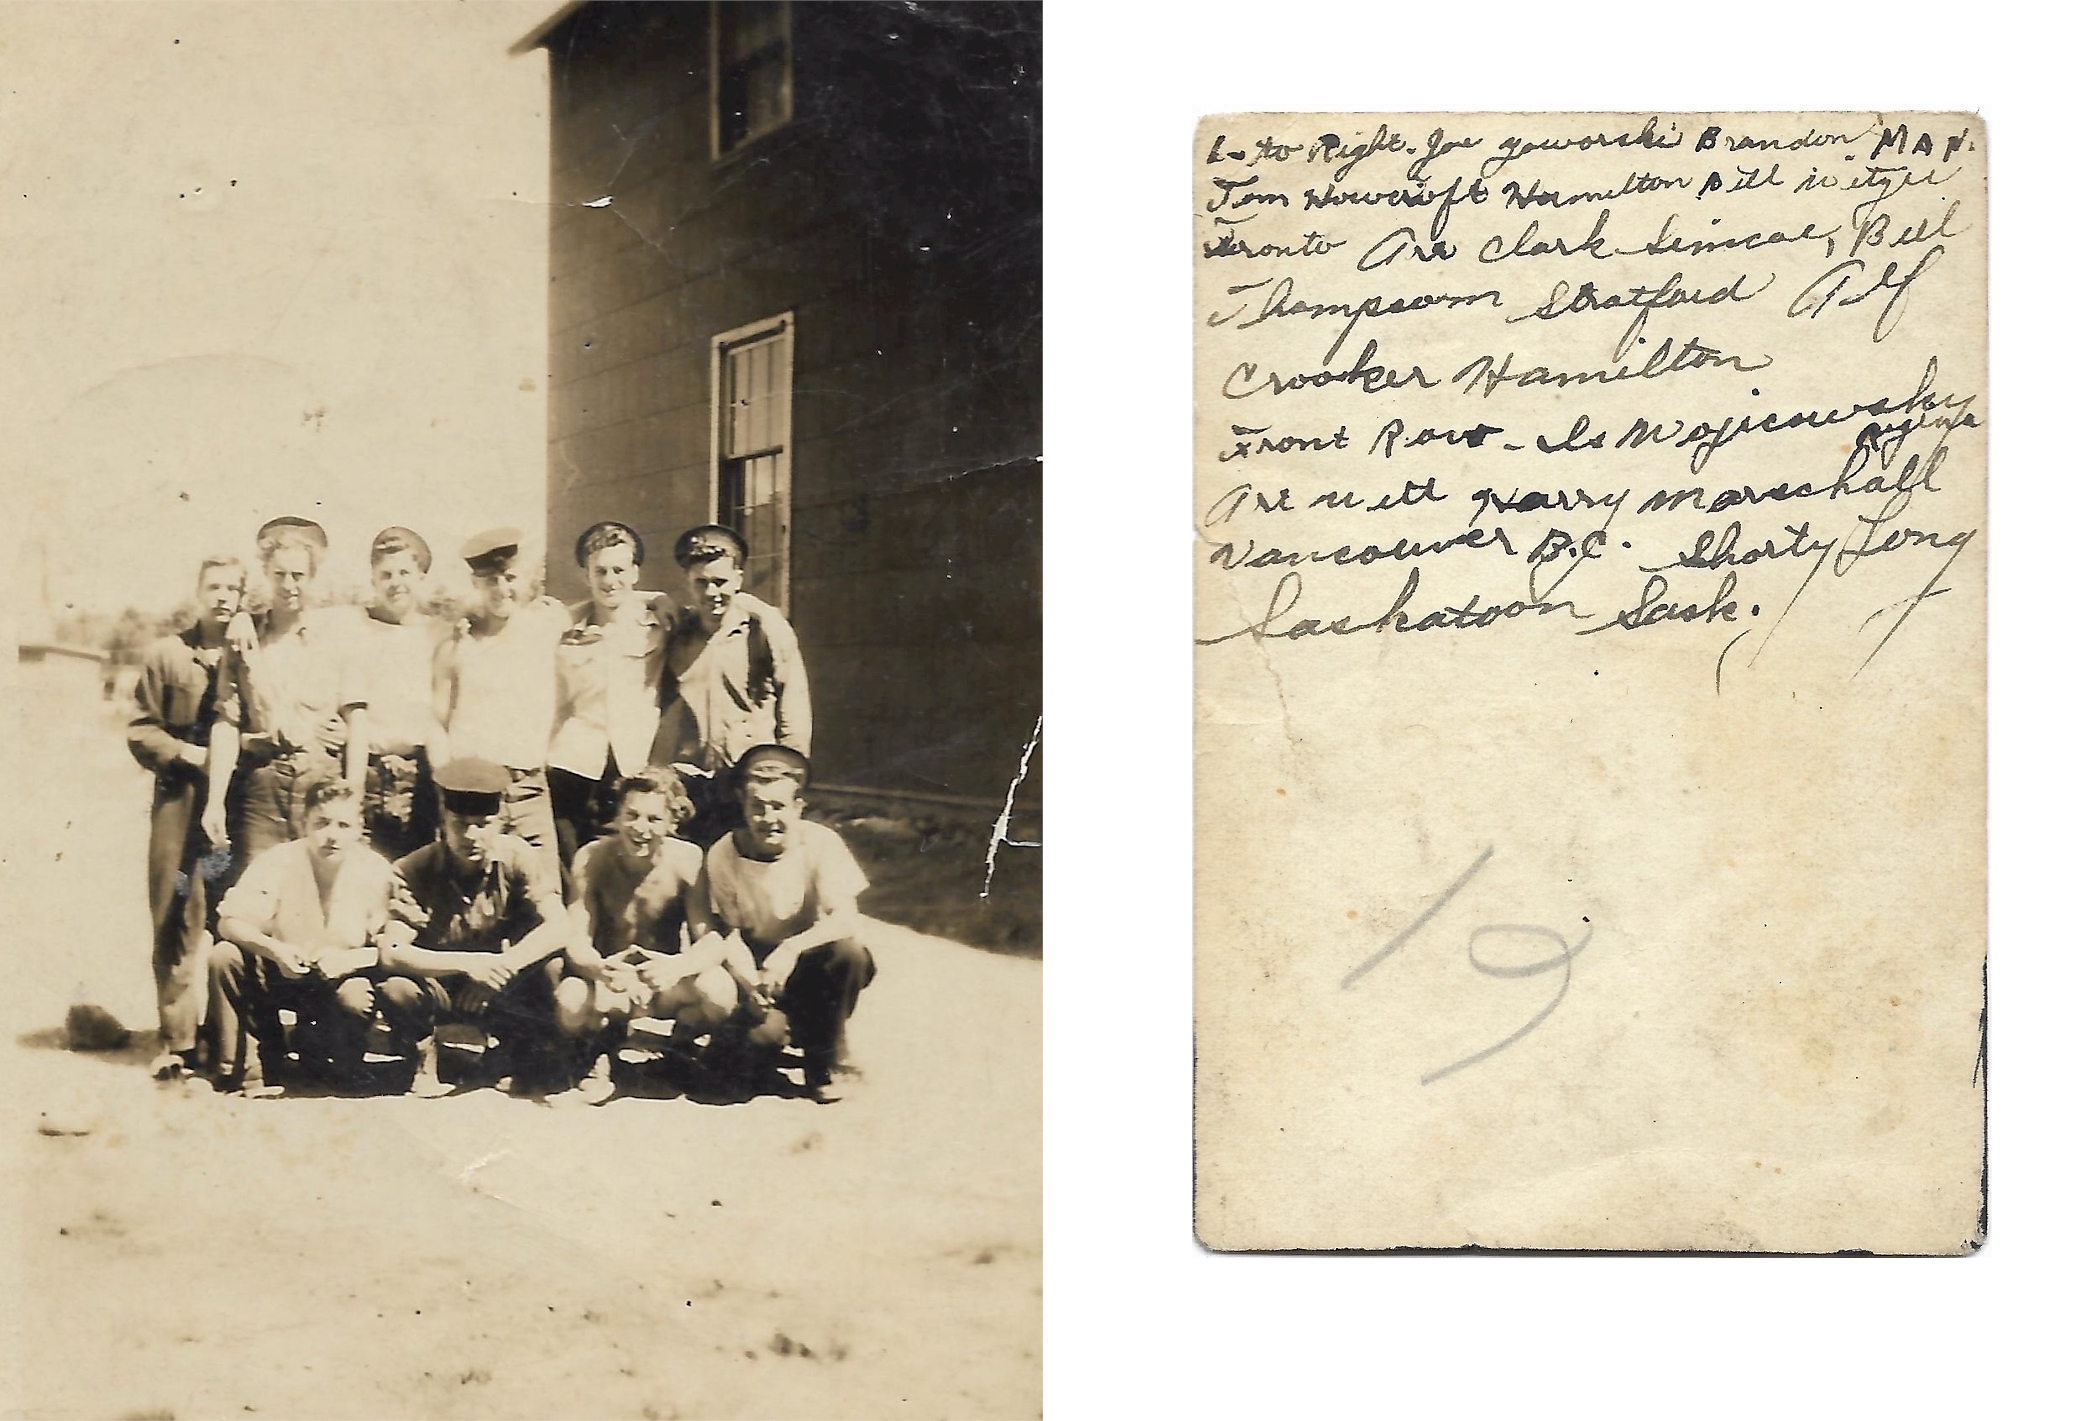 L- to Right. Joe Yaworski Brandon MAN.
Tom Howcroft Hamilton Bill
Toronto Art Clark Simcoe, Bill
Thompsom Stratford Alf
Crooker Hamilton
Front Row - Is Mojicowsky
Regina
Art Witt Harry Marschall
Vancouver B.C. Shorty Long
Saskatoon Sask.
19